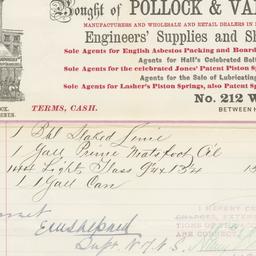 Bought of POLLOCK & VA
MANUFACTURERS AND WHOLESALE AND RETAIL DEALERS IN
Engineers' Supplies and Sh
Sole Agents for English Asbestos Packing and Board
Agents for Hall's Celebrated Bo
Sole Agents for the celebrated Jones' Patent Piston S
Agents for the Sale of Lubricating
Sole Agents for Lasher's Piston Springs, also Patent S
No. 212 W
BETWEEN H
TERMS, CASH.
1 Bbl Slaked Lime
1 Gall Prime Neatsfoot Oil
Lights Glass 9 x 13
1 1 Gall Can
I HEREBY CE
CHARGES, EXTEN
TIONS OF THE
ARE CORRECT
E M Shepard
Supt